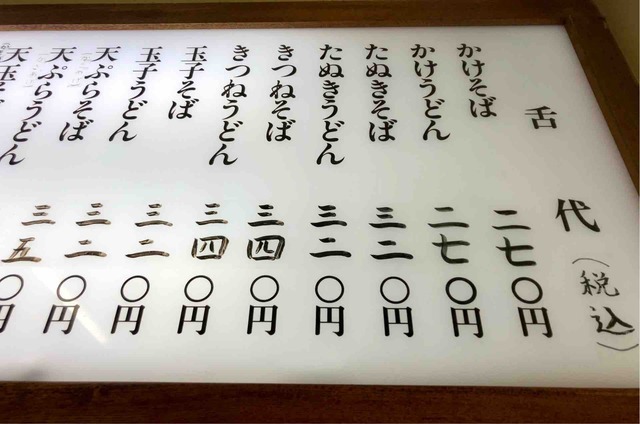 舌代(税込)
かけそば 二七〇円
かけうどん 二七〇円
たぬきそば 三二〇円
たぬきうどん 三二〇円
きつねそば 三四〇円
きつねうどん 三四〇円
玉子そば 三二〇円
玉子うどん 三二〇円
天ぷらそば 三五〇円
天ぷらうどん